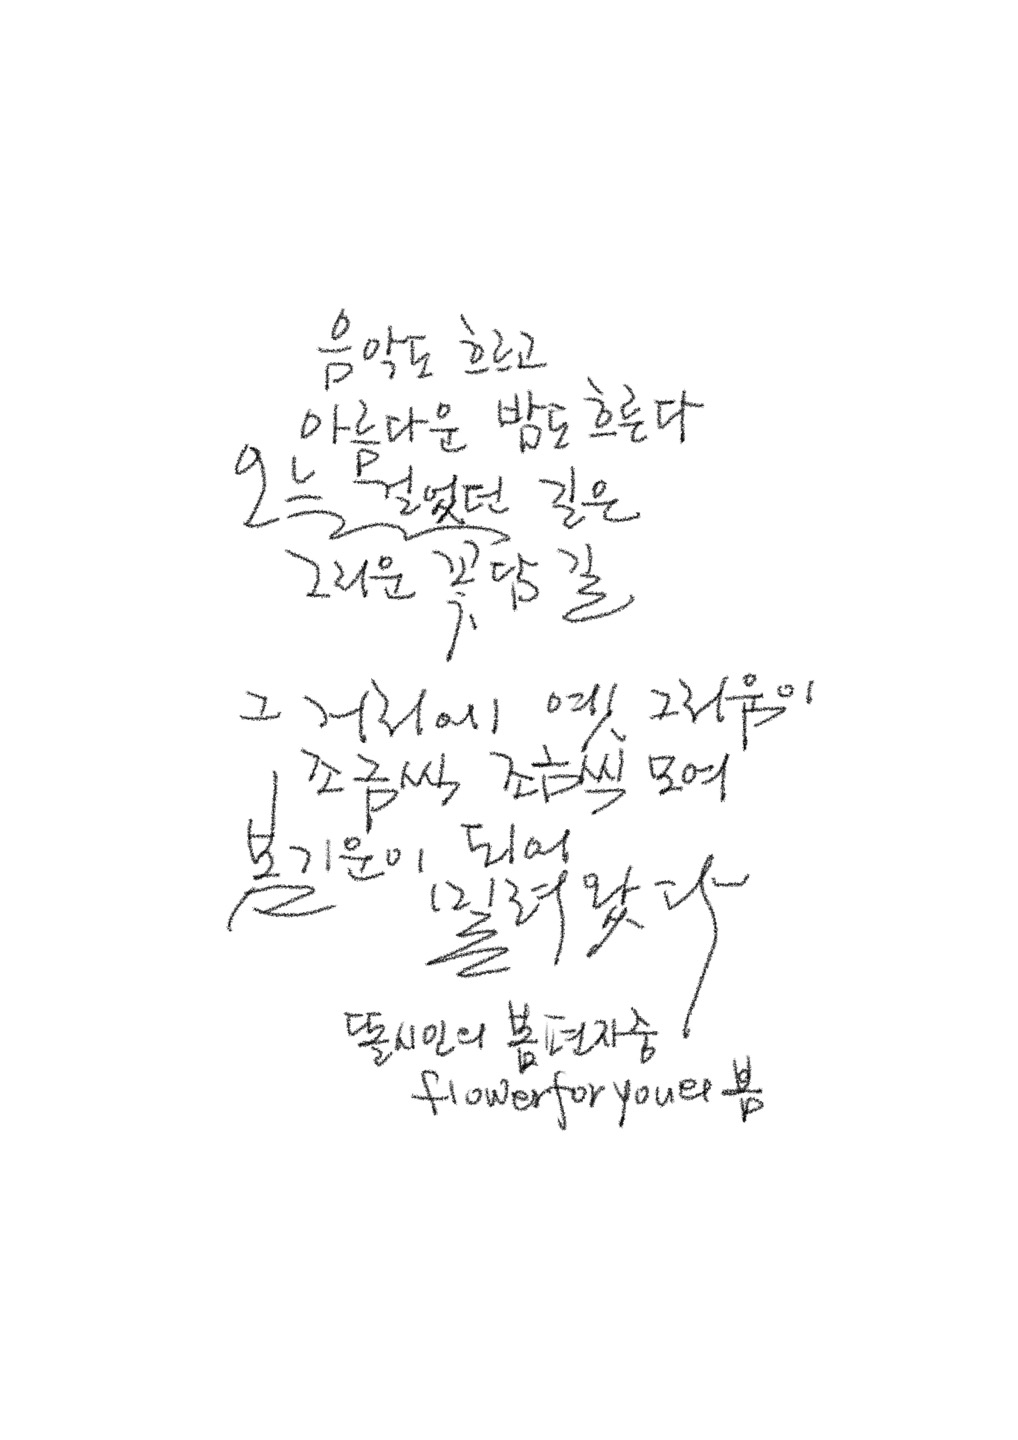 음악도 흐르고
아름다운 밤도 흐른다
오늘 걸었던 길은
그리운 꽃담 길
그 거리에 옛 그리움이
조금씩 조금씩 모여
봄기운이 되어
밀려 왔다
똘시인의 봄편지중
flowerforyou의 봄